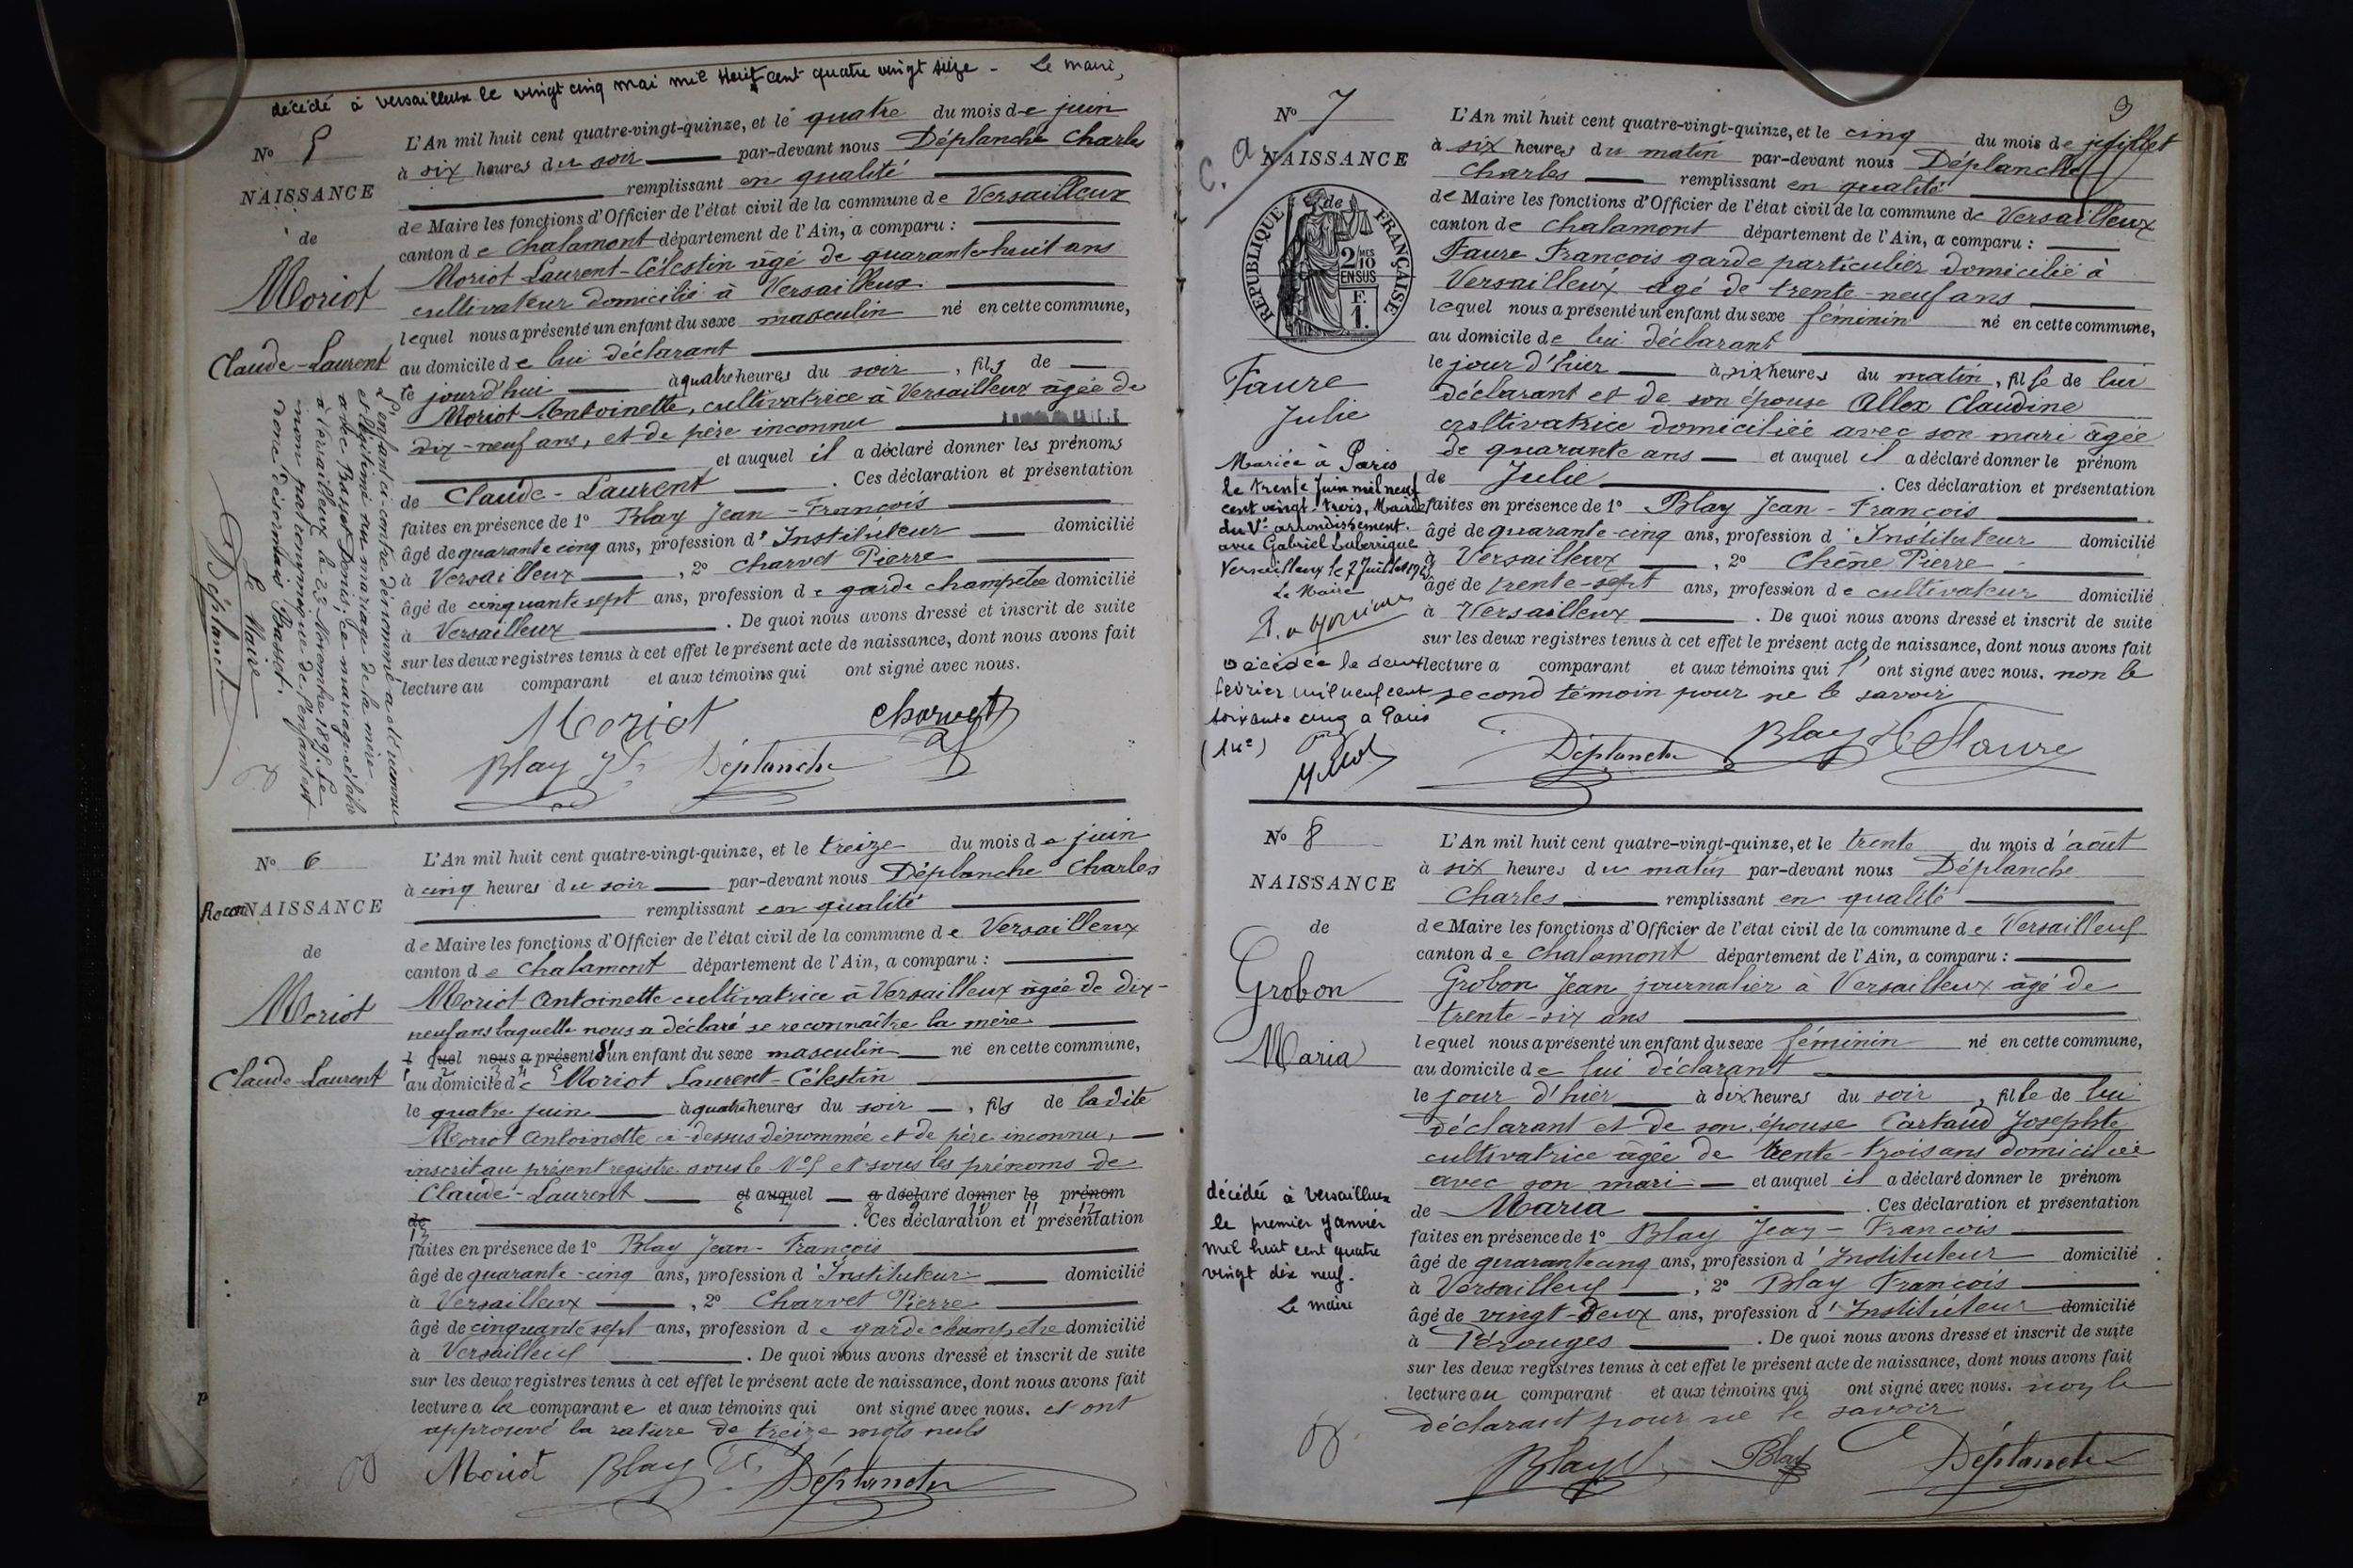 décédé à Versailleux le vingt cinq mai mil huit cent quatre vingt seize - Le maire,
No 5
NAISSANCE
de
Moriot
Claude-Laurent
L'enfant ci-contre dénommé a été reconnu
et légitimé au mariage de la mère
avec Basset Denis, ce mariage célébré
à Versailleux le 23 Novembre 1895. Le
nom patronymique de l'enfant est
donc désormais Basset.
Le Maire
Déplanche
L'An mil huit cent quatre-vingt-quinze, et le quatre du mois de juin
à six heures du soir par-devant nous Déplanche Charles
remplissant en qualité
de Maire les fonctions d'Officier de l'état civil de la commune de Versailleux
canton de Chalamont département de l'Ain, a comparu :
Moriot Laurent-Célestin âgé de quarante-huit ans
cultivateur domicilié à Versailleux
lequel nous a présenté un enfant du sexe masculin né en cette commune,
au domicile de lui déclarant
le jourd'hui à quatre heures du soir, fils de
Moriot Antoinette, cultivatrice à Versailleux âgée de
dix-neuf ans, et de père inconnu
et auquel il a déclaré donner les prénoms
de Claude-Laurent. Ces déclaration et présentation
faites en présence de 1° Blay Jean-François
âgé de quarante cinq ans, profession d'Instituteur domicilié
à Versailleux, 2° Charvet Pierre
âgé de cinquante sept ans, profession de garde champêtre domicilié
à Versailleux. De quoi nous avons dressé et inscrit de suite
sur les deux registres tenus à cet effet le présent acte de naissance, dont nous avons fait
lecture au comparant et aux témoins qui ont signé avec nous.
Moriot Charvet
Blay Déplanche
No 6
ReconNAISSANCE
de
Moriot
Claude-Laurent
L'An mil huit cent quatre-vingt-quinze, et le treize du mois de juin
à cinq heures du soir par-devant nous Déplanche Charles
remplissant en qualité
de Maire les fonctions d'Officier de l'état civil de la commune de Versailleux
canton de Chalamont département de l'Ain, a comparu :
Moriot Antoinette cultivatrice à Versailleux âgée de dix-
neuf ans laquelle nous a déclaré se reconnaître la mère
lequel nous a présenté d'un enfant du sexe masculin né en cette commune,
1 2 3 4 5
au domicile de Moriot Laurent-Célestin
le quatre juin à quatre heures du soir, fils de ladite
Moriot Antoinette ci-dessus dénommée et de père inconnu,
inscrit au présent registre sous le No 5 et sous les prénoms de
Claude-Laurent et auquel a déclaré donner le prénom
6 7 8 9 10 11 12
de. Ces déclaration et présentation
13
faites en présence de 1° Blay Jean-François
âgé de quarante-cinq ans, profession d'Instituteur domicilié
à Versailleux, 2° Charvet Pierre
âgé de cinquante sept ans, profession de garde champetre domicilié
à Versailleux. De quoi nous avons dressé et inscrit de suite
sur les deux registres tenus à cet effet le présent acte de naissance, dont nous avons fait
lecture a la comparante et aux témoins qui ont signé avec nous. et ont
approuvé la rature de treize mots nuls
Moriot Blay Déplanche
3
No 7
NAISSANCE
RÉPUBLIQUE FRANÇAISE
2/10 MES
EN SUS
F.
1.
de
Faure
Julie
Mariée à Paris
le trente Juin mil neuf
cent vingt-trois, Mairie
du Ve arrondissement.
avec Gabriel Laberrigue
Versailleux le 7 Juillet
Le Maire
Décédée le deux
février mil neuf cent
soixante cinq à Paris
(14e)
L'An mil huit cent quatre-vingt-quinze, et le cinq du mois de juillet
à six heures du matin par-devant nous Déplanche
Charles remplissant en qualité
de Maire les fonctions d'Officier de l'état civil de la commune de Versailleux
canton de Chalamont département de l'Ain, a comparu :
Faure François garde particulier domicilié à
Versailleux âgé de trente-neuf ans
lequel nous a présenté un enfant du sexe féminin né en cette commune,
au domicile de lui déclarant
le jour d'hier à six heures du matin, fille de lui
déclarant et de son épouse Allex Claudine
cultivatrice domiciliée avec son mari âgée
de quarante ans et auquel il a déclaré donner le prénom
de Julie. Ces déclaration et présentation
faites en présence de 1° Blay Jean-François
âgé de quarante-cinq ans, profession d'Instituteur domicilié
à Versailleux, 2° Chêne Pierre
âgé de trente-sept ans, profession de cultivateur domicilié
à Versailleux. De quoi nous avons dressé et inscrit de suite
sur les deux registres tenus à cet effet le présent acte de naissance, dont nous avons fait
lecture a comparant et aux témoins qui l' ont signé avec nous. non le
second témoin pour ne le savoir
Déplanche Blay Faure
No 8
NAISSANCE
de
Grobon
Maria
décédée à Versailleux
le premier Janvier
mil huit cent quatre
vingt dix neuf.
Le maire
L'An mil huit cent quatre-vingt-quinze, et le trente du mois d'août
à six heures du matin par-devant nous Déplanche
Charles remplissant en qualité
de Maire les fonctions d'Officier de l'état civil de la commune de Versailleux
canton de Chalamont département de l'Ain, a comparu :
Grobon Jean journalier à Versailleux âgé de
trente-six ans
lequel nous a présenté un enfant du sexe féminin né en cette commune,
au domicile de lui déclarant
le jour d'hier à dix heures du soir, fille de lui
déclarant et de son épouse Cartaud Josephte
cultivatrice âgée de trente-trois ans domiciliée
avec son mari et auquel il a déclaré donner le prénom
de Maria. Ces déclaration et présentation
faites en présence de 1° Blay Jean-François
âgé de quarante cinq ans, profession d'Instituteur domicilié
à Versailleux, 2° Blay François
âgé de vingt-deux ans, profession d'Instituteur domicilié
à Pérouges. De quoi nous avons dressé et inscrit de suite
sur les deux registres tenus à cet effet le présent acte de naissance, dont nous avons fait
lecture au comparant et aux témoins qui ont signé avec nous. non le
déclarant pour ne le savoir
Blay Blay Déplanche